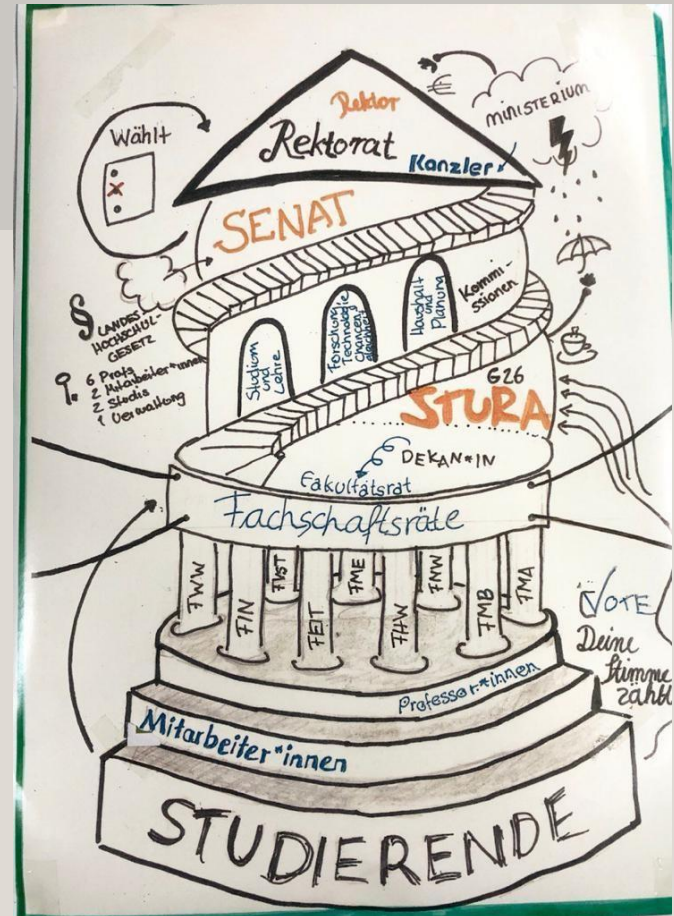 €
MINISTERIUM
Rektor
Rektorat
Kanzler
Wählt
x
SENAT
§
LANDES-
HOCHSCHUL-
GESETZ
6 Profs
2 Mitarbeiter*innen
2 Studis
1 Verwaltung
Studium
und
Lehre
Forschung
Technologie
chancen
gleichheit
Haushalt
und
Planung
Kommi-
ssionen
G26
STURA
DEKAN*IN
Fakultätsrat
Fachschaftsräte
FWW
FIN
FVST
FEIT
FME
FHW
FNW
FMB
FMA
VOTE
Deine
Stimme
zählt
Professor*innen
Mitarbeiter*innen
STUDIERENDE